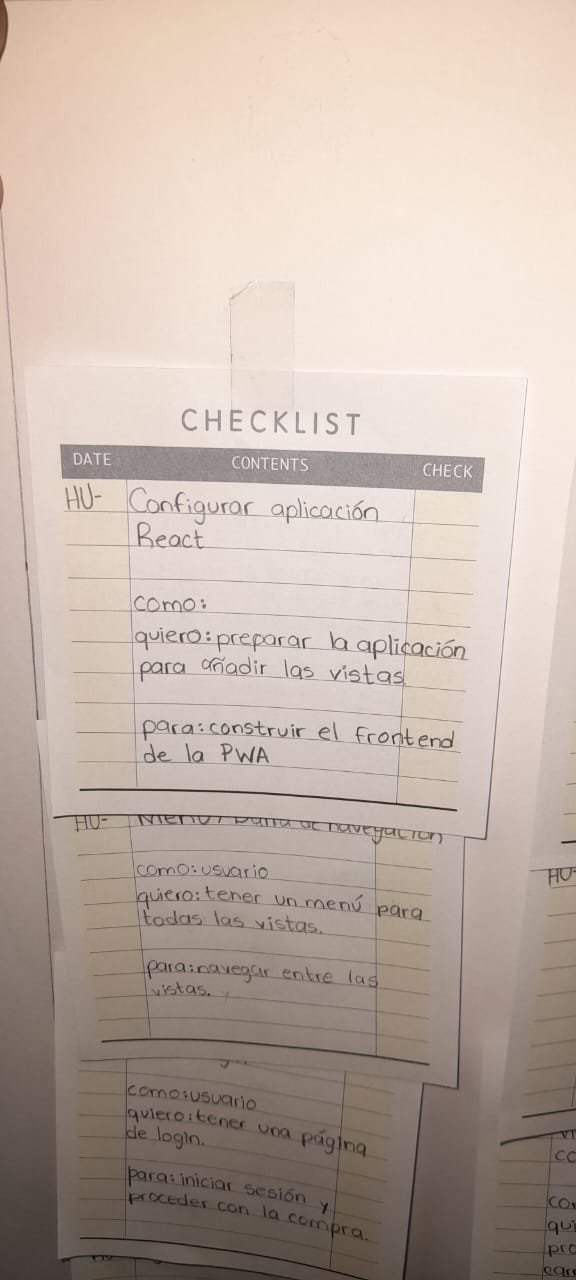 CHECKLIST
DATE CONTENTS CHECK
HU- Configurar aplicación
React
como:
quiero: preparar la aplicación
para añadir las vistas
para: construir el frontend
de la PWA
HU- Menú / barra de navegación
como: usuario
quiero: tener un menú para
todas las vistas.
para: navegar entre las
vistas.
como: usuario
quiero: tener una página
de login.
para: iniciar sesión y
proceder con la compra.
HU-